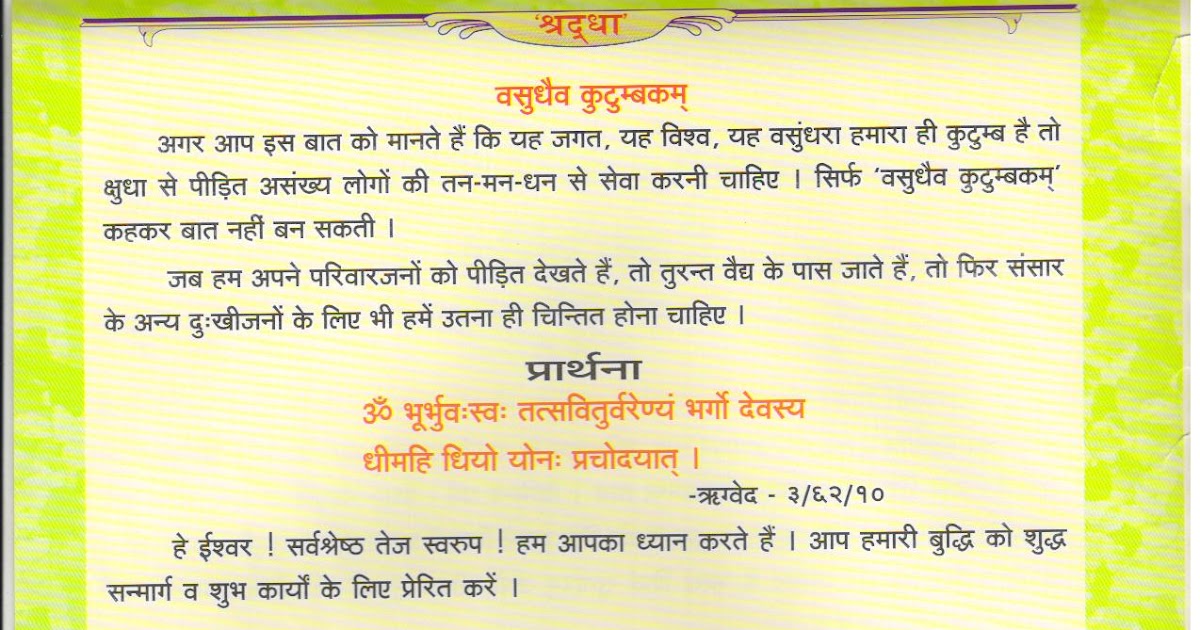 'श्रद्धा'
वसुधैव कुटुम्बकम्
अगर आप इस बात को मानते हैं कि यह जगत, यह विश्व, यह वसुंधरा हमारा ही कुटुम्ब है तो
क्षुधा से पीड़ित असंख्य लोगों की तन-मन-धन से सेवा करनी चाहिए । सिर्फ 'वसुधैव कुटुम्बकम्'
कहकर बात नहीं बन सकती ।
जब हम अपने परिवारजनों को पीड़ित देखते हैं, तो तुरन्त वैद्य के पास जाते हैं, तो फिर संसार
के अन्य दुःखीजनों के लिए भी हमें उतना ही चिन्तित होना चाहिए ।
प्रार्थना
ॐ भूर्भुवःस्वः तत्सवितुर्वरेण्यं भर्गो देवस्य
धीमहि धियो योनः प्रचोदयात् ।
-ऋग्वेद - ३/६२/१०
हे ईश्वर ! सर्वश्रेष्ठ तेज स्वरुप ! हम आपका ध्यान करते हैं । आप हमारी बुद्धि को शुद्ध
सन्मार्ग व शुभ कार्यों के लिए प्रेरित करें ।